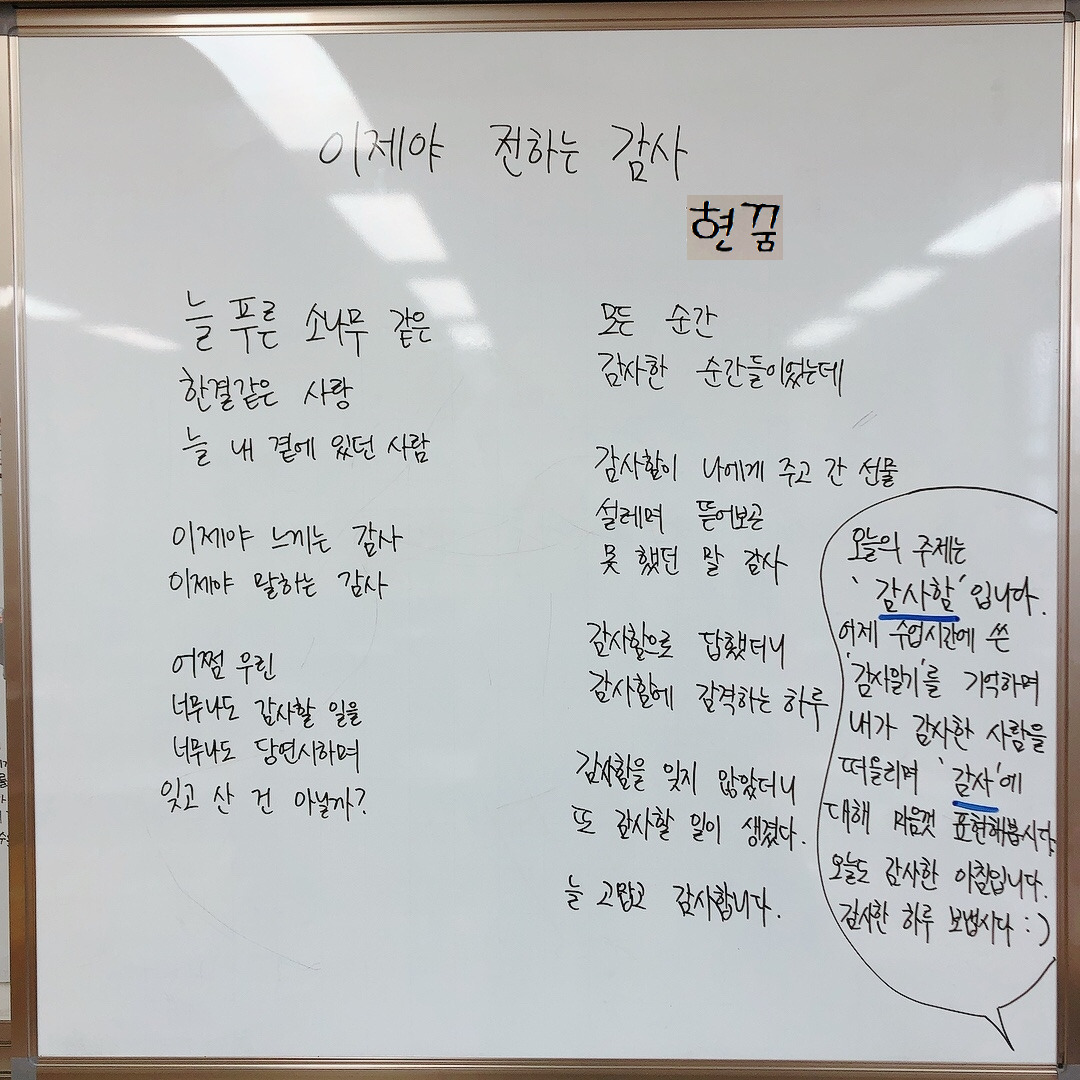 이제야 전하는 감사
현꿈
늘 푸른 소나무 같은
한결같은 사랑
늘 내 곁에 있던 사람
이제야 느끼는 감사
이제야 말하는 감사
어쩜 우린
너무나도 감사할 일을
너무나도 당연시하며
잊고 산 건 아닐까?
모든 순간
감사한 순간들이었는데
감사함이 나에게 주고 간 선물
설레며 뜯어보곤
못 했던 말 감사
감사함으로 답했더니
감사함에 감격하는 하루
감사함을 잊지 않았더니
또 감사할 일이 생겼다.
늘 고맙고 감사합니다.
오늘의 주제는
'감사함'입니다.
어제 수업시간에 쓴
'감사일기'를 기억하며
내가 감사한 사람을
떠올리며 '감사'에
대해 마음껏 표현해봅시다
오늘도 감사한 아침입니다.
감사한 하루 보냅시다 :)